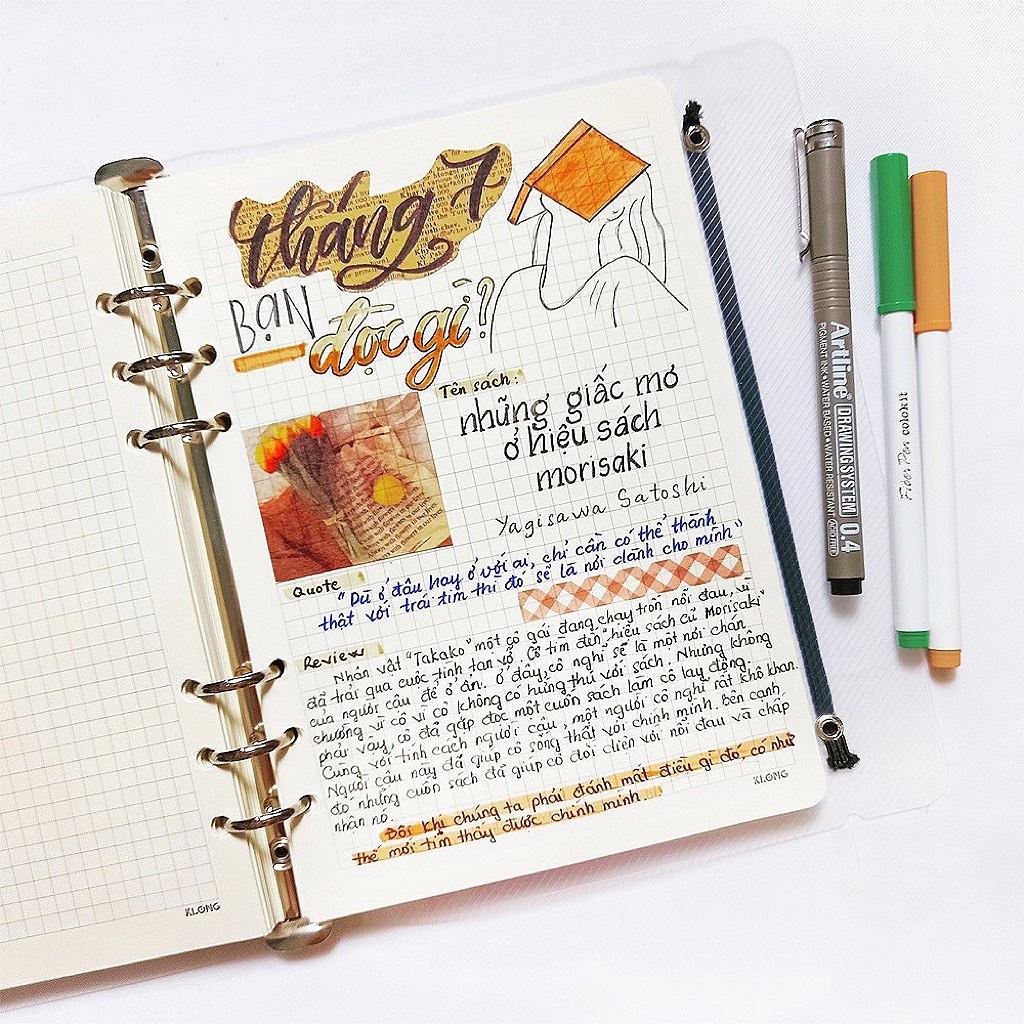 tháng 7
BẠN
đọc gì?
Tên sách:
những giấc mơ
ở hiệu sách
morisaki
Yagisawa Satoshi
Quote
"Dù ở đâu hay ở với ai, chỉ cần có thể thành
thật với trái tim thì đó sẽ là nơi dành cho mình"
Review
Nhân vật "Takako" một cô gái đang chạy trốn nỗi đau, vì
đã trải qua cuộc tình tan vỡ. Cô tìm đến "hiệu sách cũ Morisaki"
của người cậu để ở ẩn. Ở đây, cô nghĩ sẽ là một nơi chán
chường vì cô vì cô không có hứng thú với sách. Nhưng không
phải vậy, cô đã gặp đọc một cuốn sách làm cô lay động.
Cùng với tính cách người cậu, một người cô nghĩ rất khô khan.
Người cậu này đã giúp cô sống thật với chính mình. Bên cạnh
đó những cuốn sách đã giúp cô đối diện với nỗi đau và chấp
nhận nó.
Đôi khi chúng ta phải đánh mất điều gì đó, có như
thế mới tìm thấy được chính mình...
KLONG
KLONG
Artline®
DRAWING SYSTEM 0.4
PIGMENT INK • WATER BASED • WATER RESISTANT
ACID FREE
Fiber Pen colokit